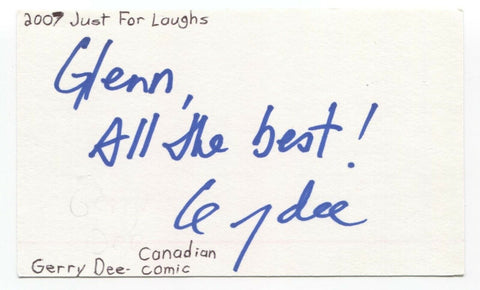 2007 Just For Laughs
Glenn,
All the best!
Gerry dee
Canadian
Gerry Dee- comic